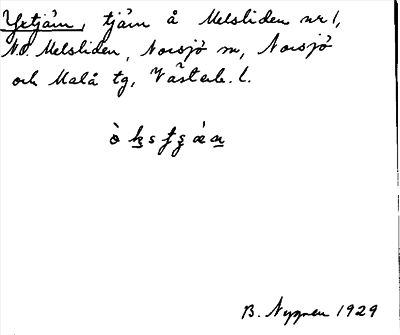 Yxtjärn, tjärn å Melsliden nr 1,
N.O. Melsliden, Norsjö sn, Norsjö
och Malå tg, Västerb. l.
B. Nygren 1929